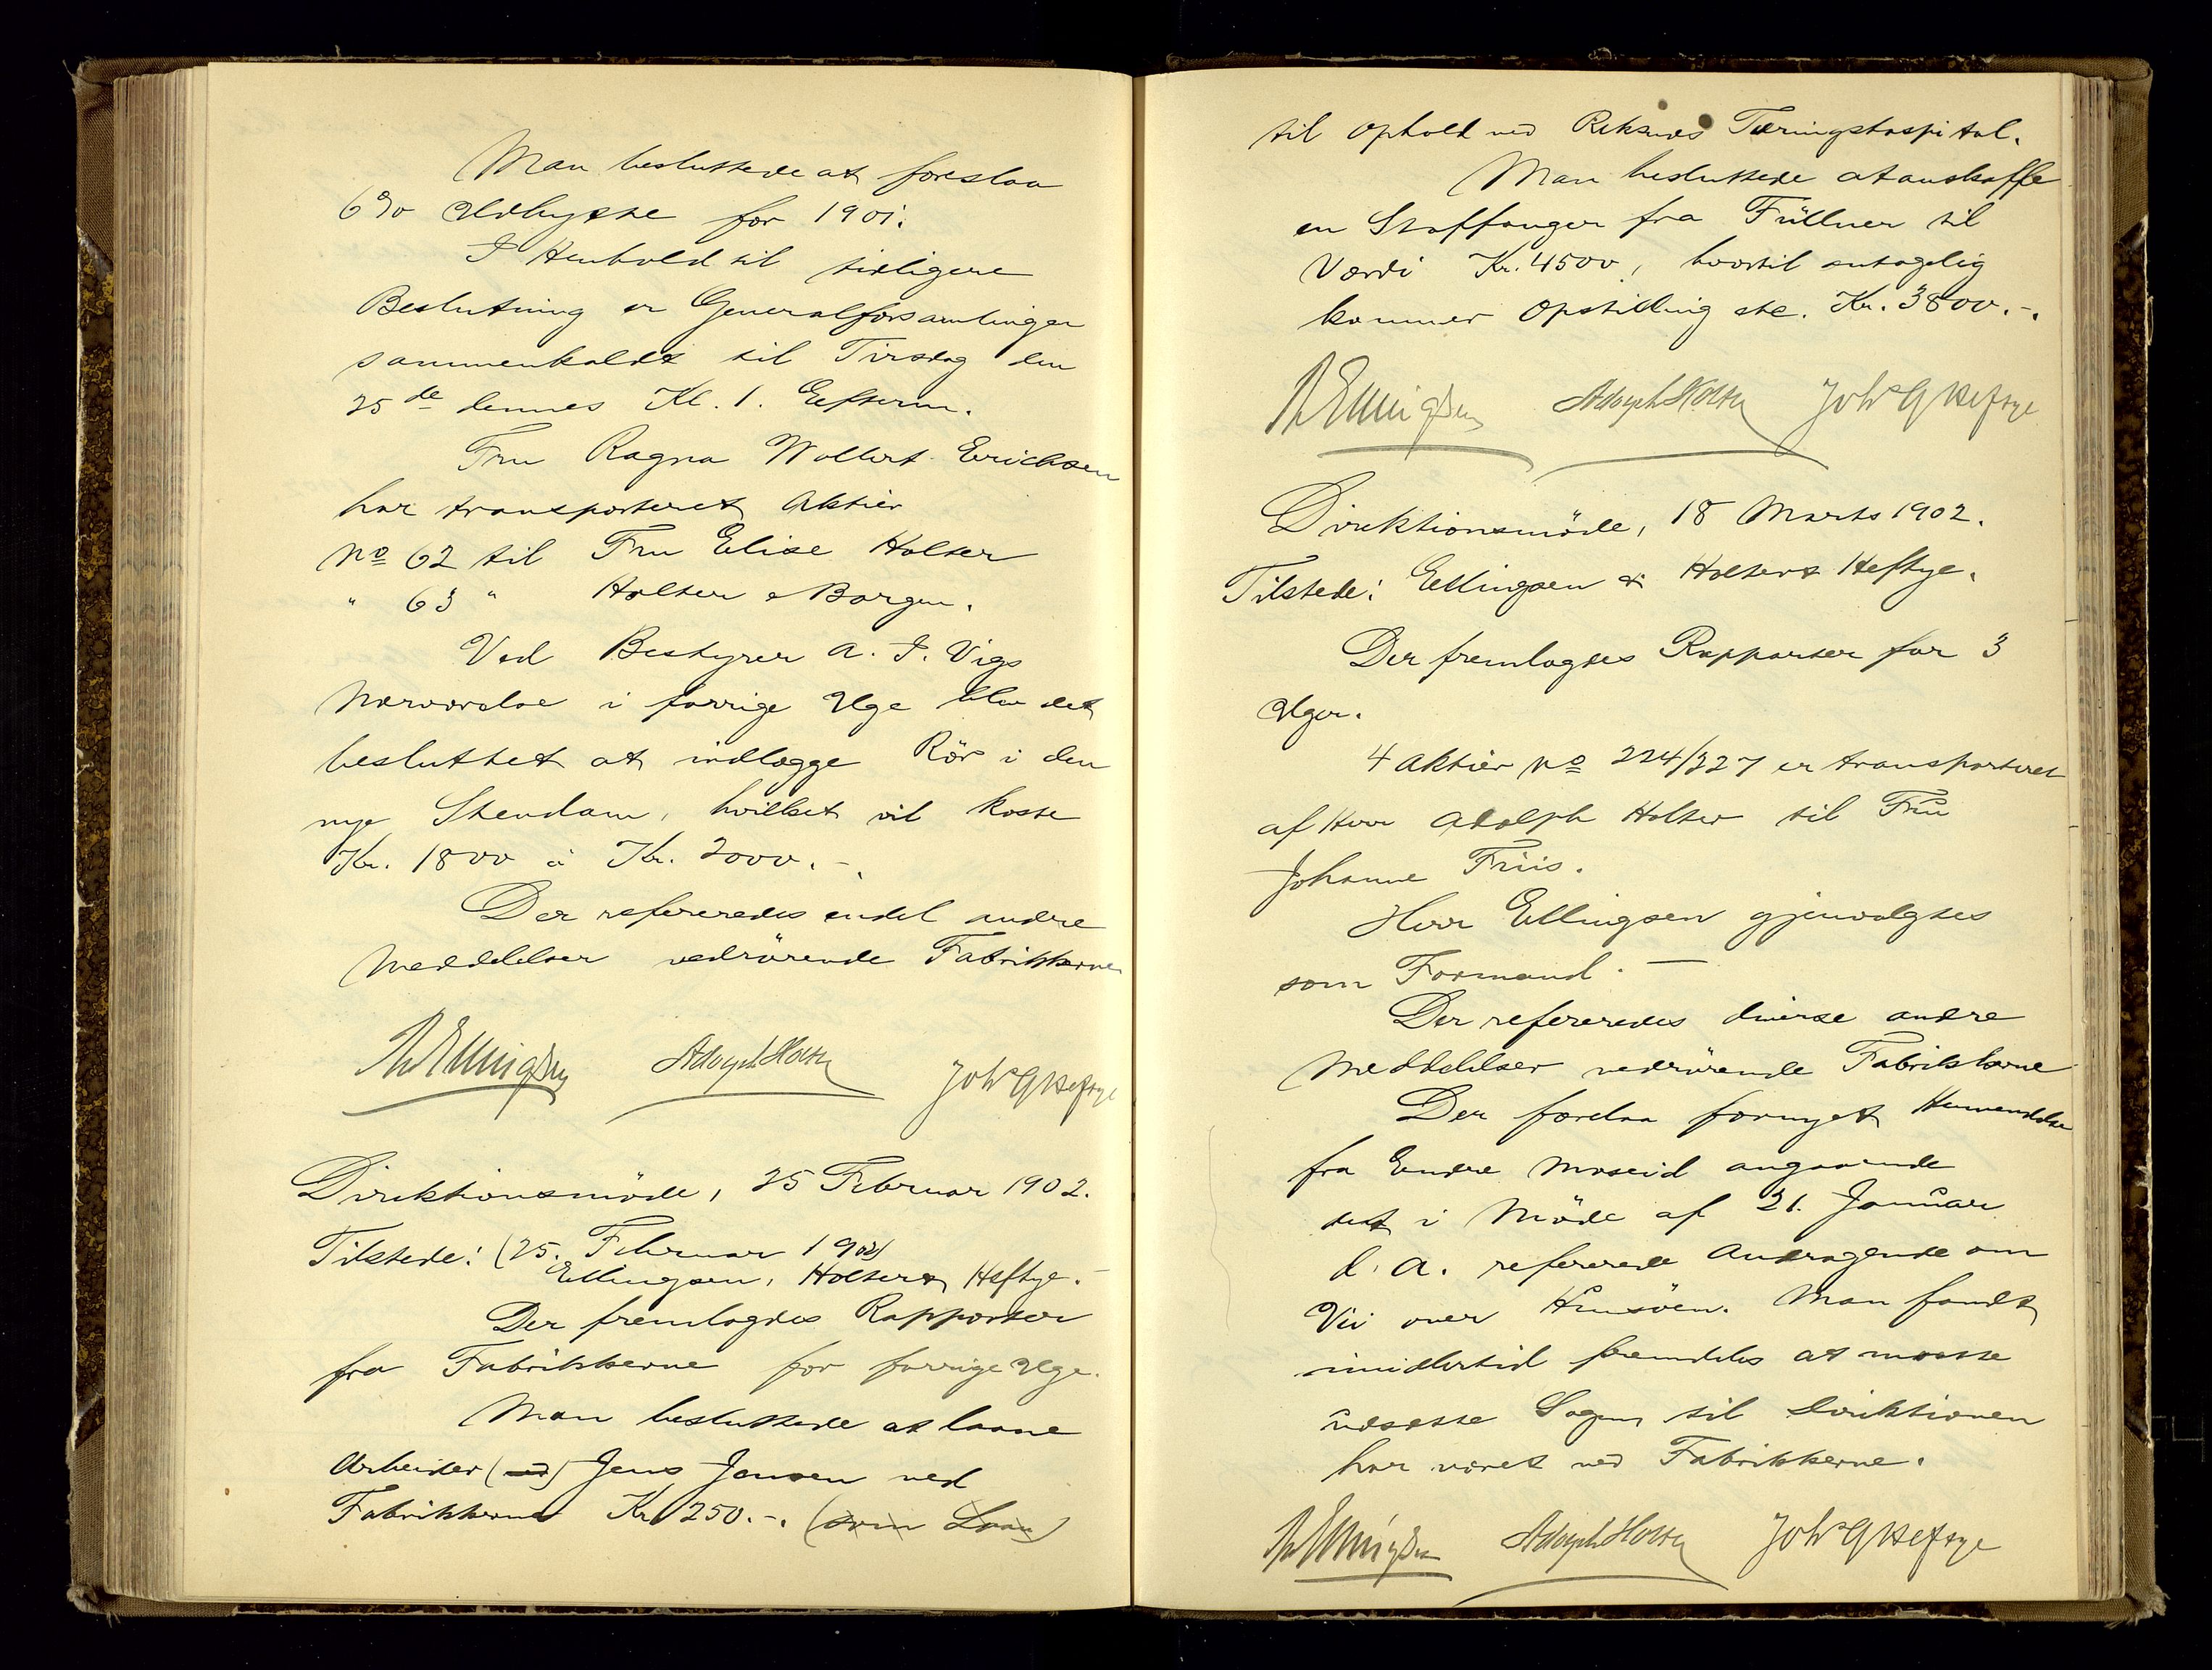 Man besluttede at foreslaa
6% Udbytte for 1901.
I Henhold til tidligere
Beslutning er Generalforsamlingen
sammenkaldt til Tirsdag den
25de dennes Kl. 1. Efterm.
Fru Ragna Wollert Erichsen
har transporteret Aktier
No 62 til Fru Elise Holter
" 63 " Holter & Borgen.
Ved Bestyrer A. I. Vigs
Nærværelse i forrige Uge blev det
besluttet at indlægge Rör i den
nye Stendam, hvilket vil koste
Kr. 1800 à Kr. 2000.-.
Der refereredes endel andre
Meddelelser vedrörende Fabrikkerne
Ellingsen Adolph Holter Joh G Heftye
Direktionsmöde, 25 Februar 1902.
Tilstede: (25. Februar 1902)
Ellingsen, Holter & Heftye.-
Der fremlagdes Rapporter
fra Fabrikkerne for forrige Uge.
Man besluttede at laane
Arbeider (ved) Jens Jensen ved
Fabrikkerne Kr 250.-. (som Laan)
til Ophold ved Reknes Tæringshospital.
Man besluttede at anskaffe
en Stoffanger fra Füllner til
Værdi Kr. 4500, hvortil antagelig
kommer Opstilling etc. Kr. 3800.-.
Ellingsen Adolph Holter Joh G Heftye
Direktionsmöde, 18 Marts 1902.
Tilstede: Ellingsen & Holter & Heftye.
Der fremlagdes Rapporter for 3
Uger.
4 Aktier No 224/227 er transporteret
af Herr Adolph Holter til Fru
Johanne Friis.
Herr Ellingsen gjenvalgtes
som Formand. —
Der refereredes diverse andre
Meddelelser vedrörende Fabrikkerne
Der forelaa fornyet Henvendelse
fra Endre Moseid angaaende
det i Möde af 21. Januar
d. A. refererede Andragende om
Vei over Hunsöen. Man fandt
imidlertid fremdeles at maatte
udsætte Sagen til Direktionen
har været ved Fabrikkerne.
Ellingsen Adolph Holter Joh G Heftye